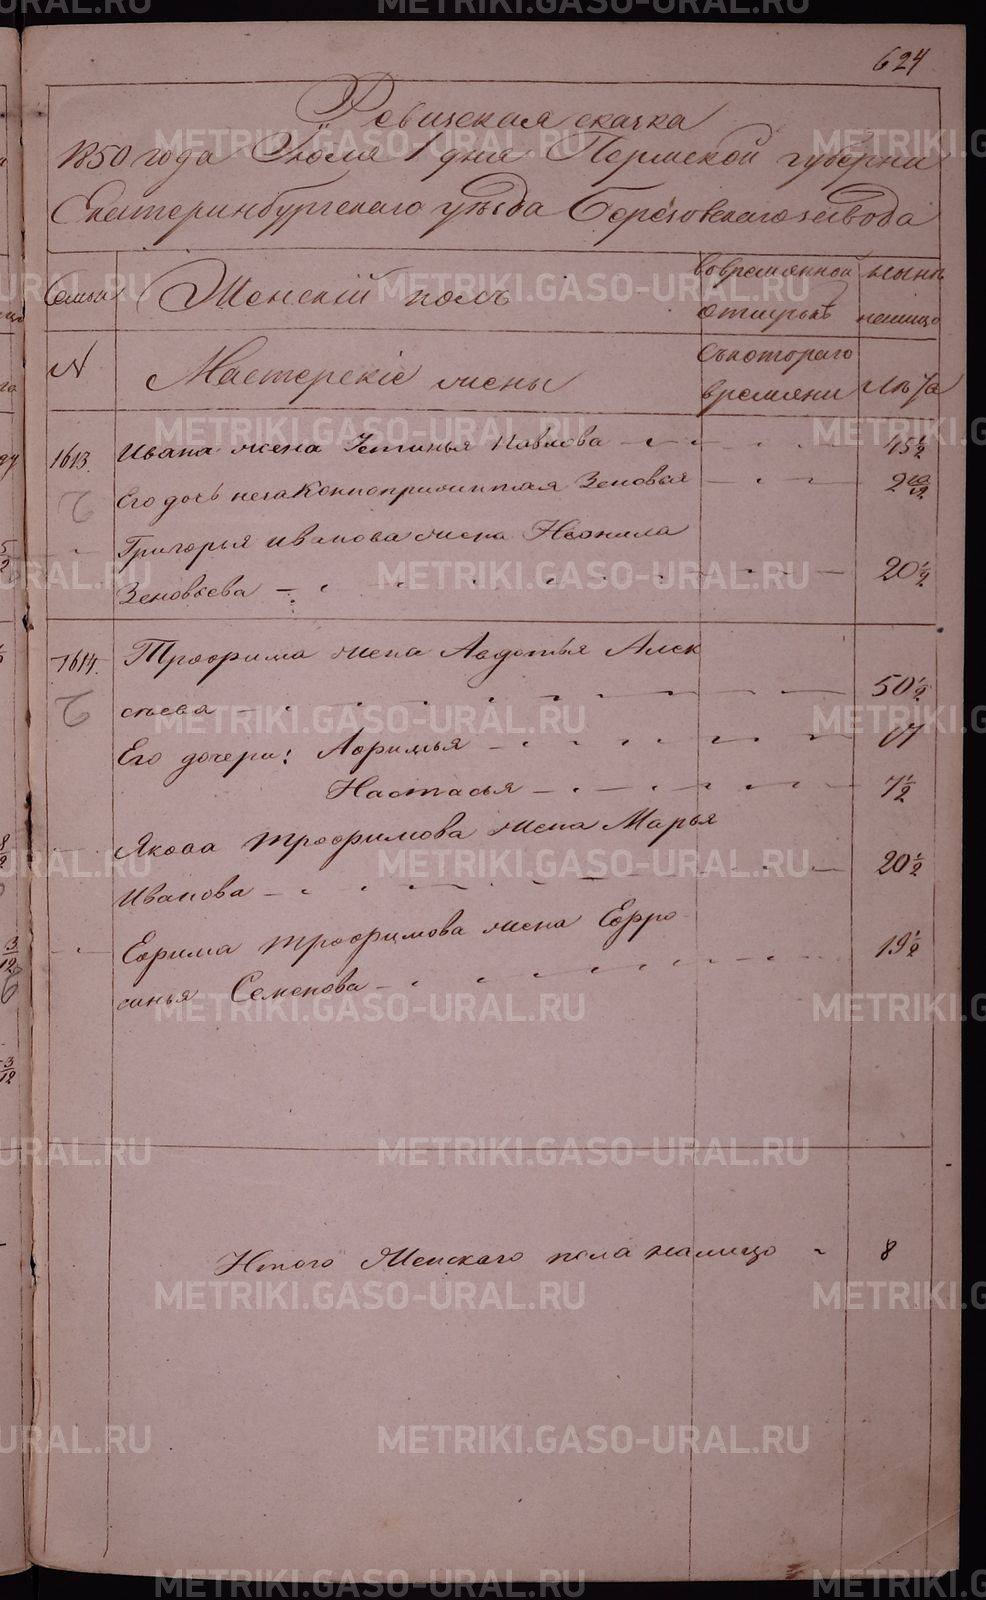 624
Ревизская скаска
1850 года Июля 1 дня Пермской губернии
Екатеринбургскаго уезда Березовскаго завода
Семьи Женскій полъ вовременной отлучкѣ ныне налицо
N Мастерскіе жены съкотораго времяни Лѣта
1613. Ивана жена Устинья Павлова 45 1/2
Его дочь незаконноприжитая Зеновья 2
Григорья Иванова жена Неонила
Зеновьева 20 1/2
1614. Трофима жена Авдотья Алек
сѣева 50 1/2
Его дочери: Афимья 17
Настасья 7 1/2
Якова Трофимова жена Марья
Иванова 20 1/2
Ефима Трофимова жена Ефро
синья Семенова 19 1/2
Итого Женскаго пола налицо 8
METRIKI.GASO-URAL.RU